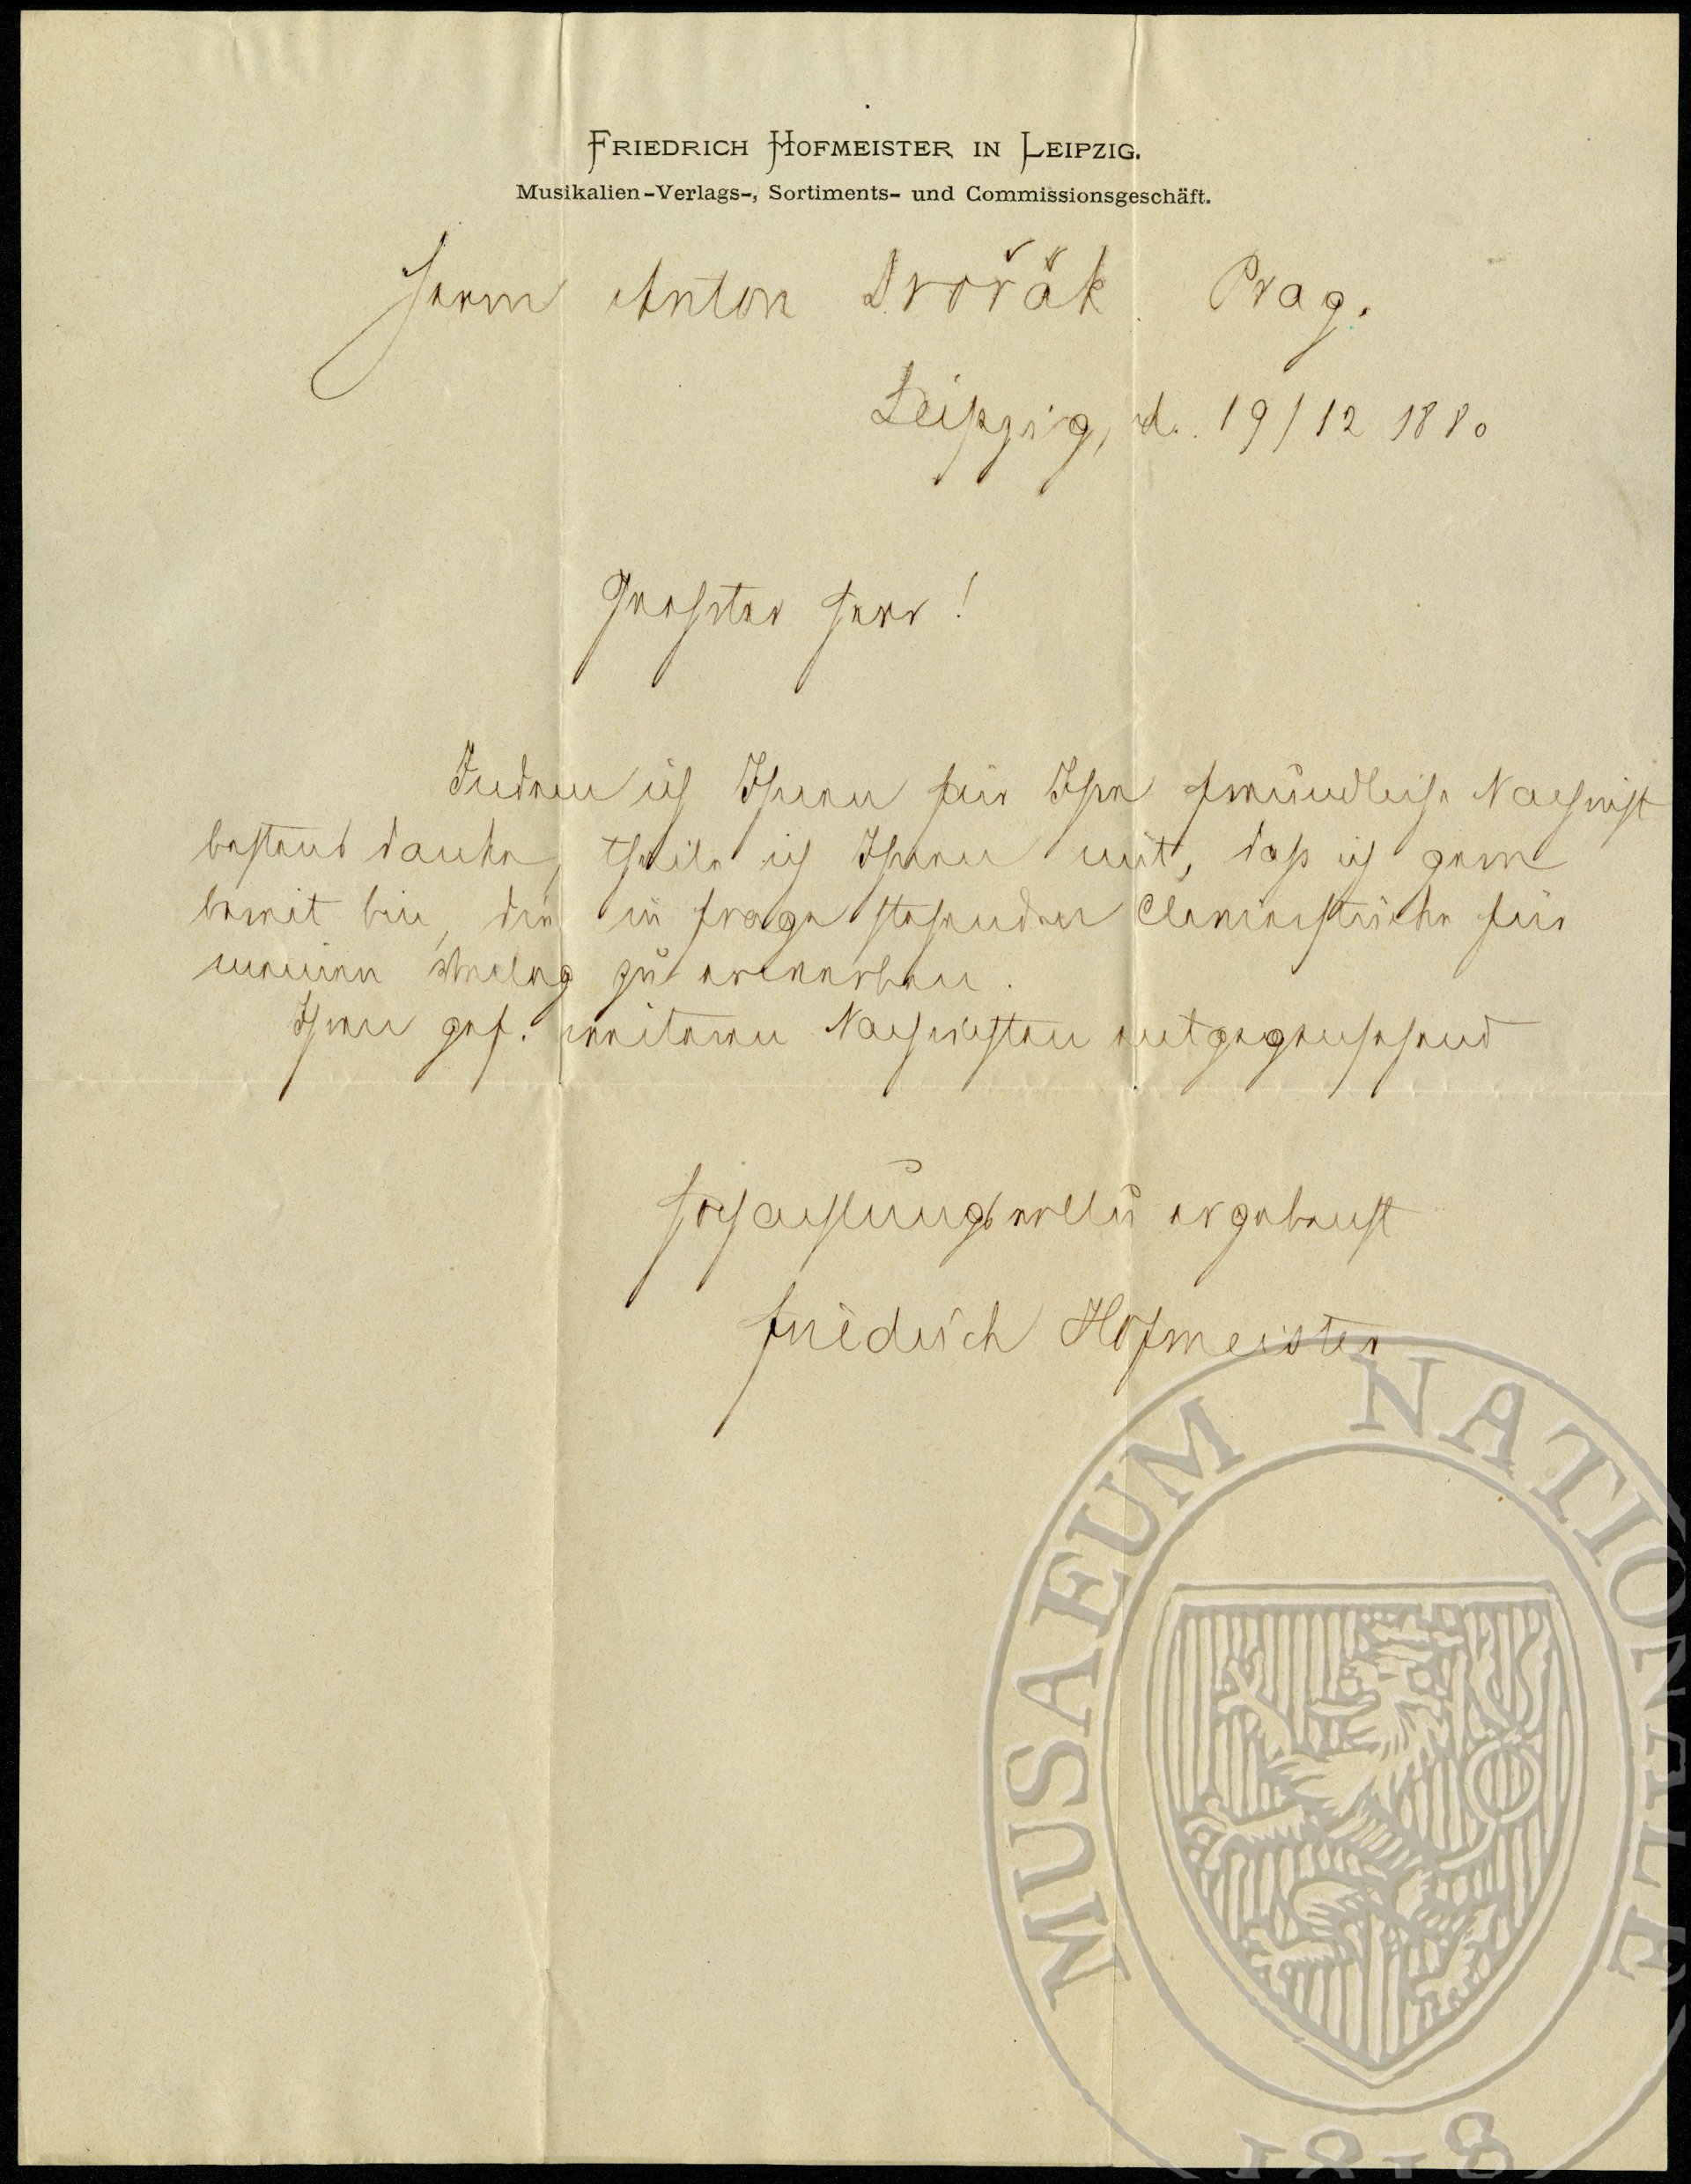 FRIEDRICH HOFMEISTER IN LEIPZIG.
Musikalien-Verlags-, Sortiments- und Commissionsgeschäft.
Herrn Anton Dvořák Prag.
Leipzig, d. 19/12 1880
Geehrter Herr!
Indem ich Ihnen für Ihre freundliche Nachricht
bestens danke, theile ich Ihnen mit, daß ich gern
bereit bin, die in Frage stehenden Clavierstücke für
meinen Verlag zu erwerben.
Ihren gef. weiteren Nachrichten entgegensehend
Hochachtungsvoll ergebenst
Friedrich Hofmeister
MUSAEUM NATIONALE
1818